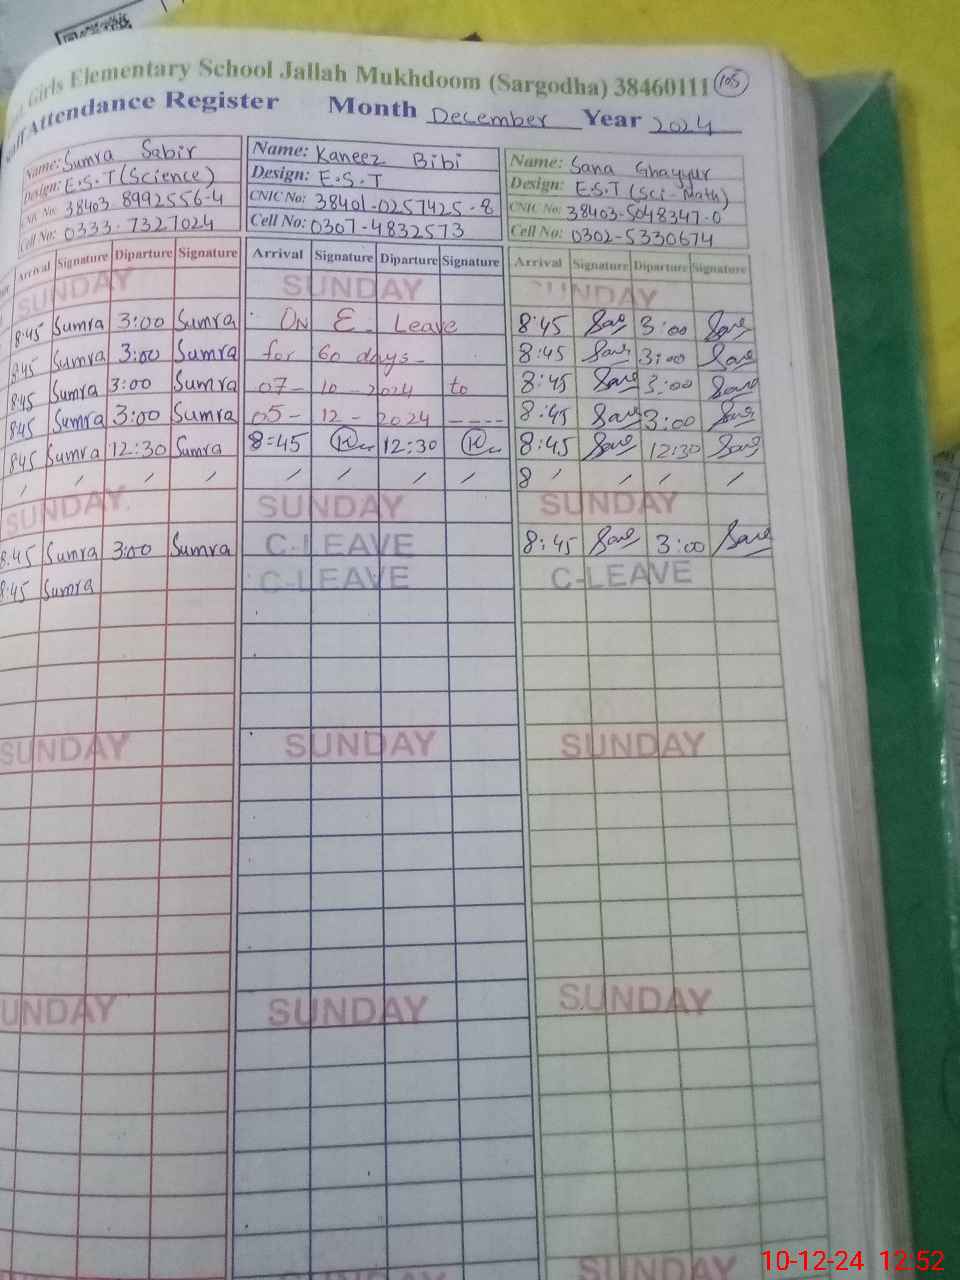 Girls Elementary School Jallah Mukhdoom (Sargodha) 38460111 105
Attendance Register Month December Year 2024
Name: Sumra Sabir Name: Kaneez Bibi Name: Sana Ghayyur
Design: E.S.T (Science) Design: E.S.T Design: E.S.T (Sci-Math)
CNIC No: 38403 8992556-4 CNIC No: 38401-0257425-8 CNIC No: 38403-5048347-0
Cell No: 0333-7327024 Cell No: 0307-4832573 Cell No: 0302-5330674
Arrival Signature Diparture Signature Arrival Signature Diparture Signature Arrival Signature Diparture Signature
SUNDAY SUNDAY SUNDAY
8:45 Sumra 3:00 Sumra ON E- Leave 8:45 3:00
8:45 Sumra 3:00 Sumra for 60 days- 8:45 3:00
8:45 Sumra 3:00 Sumra 07-10-2024 to 8:45 3:00
8:45 Sumra 3:00 Sumra 05-12-2024 ---- 8:45 3:00
8:45 Sumra 12:30 Sumra 8=45 12:30 8:45 12:30
/ / / / / / / / 8 / / / /
SUNDAY SUNDAY SUNDAY
8:45 Sumra 3:00 Sumra C-LEAVE 8:45 3:00
8:45 Sumra C-LEAVE C-LEAVE
SUNDAY SUNDAY SUNDAY
SUNDAY SUNDAY SUNDAY
SUNDAY SUNDAY
10-12-24 12:52